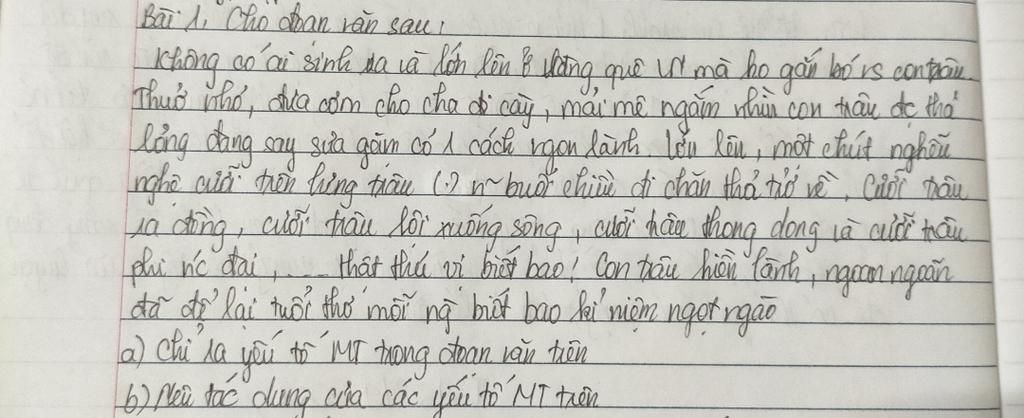 Bài 1. Cho đoạn văn sau:
Không có ai sinh ra và lớn lên ở làng quê VN mà ko gắn bó vs con trâu.
Thuở nhỏ, đưa cơm cho cha đi cày, mải mê ngắm nhìn con trâu đc thả
lỏng đang say sưa gặm cỏ 1 cách ngon lành. Lớn lên, một chút nghễu
nghê cưỡi trên lưng trâu (.) n~ buổi chiều đi chăn thả trở về. Cưỡi trâu
ra đồng, cưỡi trâu lội xuống sông, cưỡi trâu thong dong và cưỡi trâu
phi nc đại, ... thật thú vị biết bao! Con trâu hiền lành, ngoan ngoãn
đã để lại tuổi thơ mỗi ng biết bao kỉ niệm ngọt ngào
a) Chỉ ra yếu tố MT trong đoạn văn trên
b) Nêu tác dụng của các yếu tố MT trên